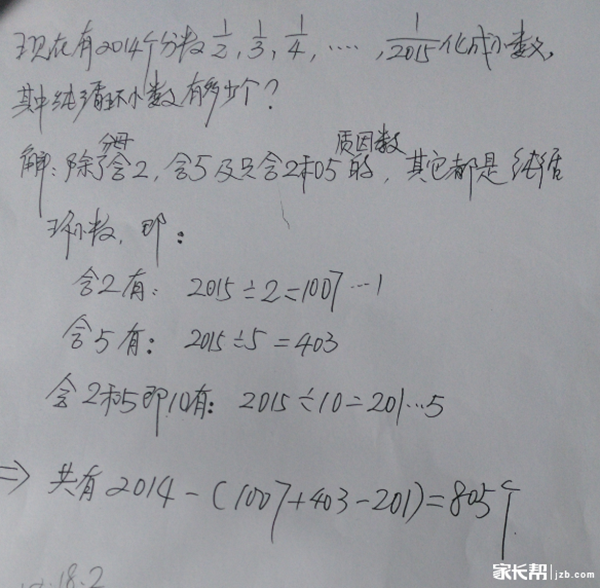 现在有2014个分数 1/2, 1/3, 1/4, ……, 1/2015 化成小数,
其中纯循环小数有多少个?
解: 除了分母含2, 含5及只含2和5质因数的, 其它都是纯循
环小数, 即:
含2有: 2015÷2=1007…1
含5有: 2015÷5=403
含2和5即10有: 2015÷10=201…5
⇒ 共有2014-(1007+403-201)=805个
18.2
家长帮 jzb.com